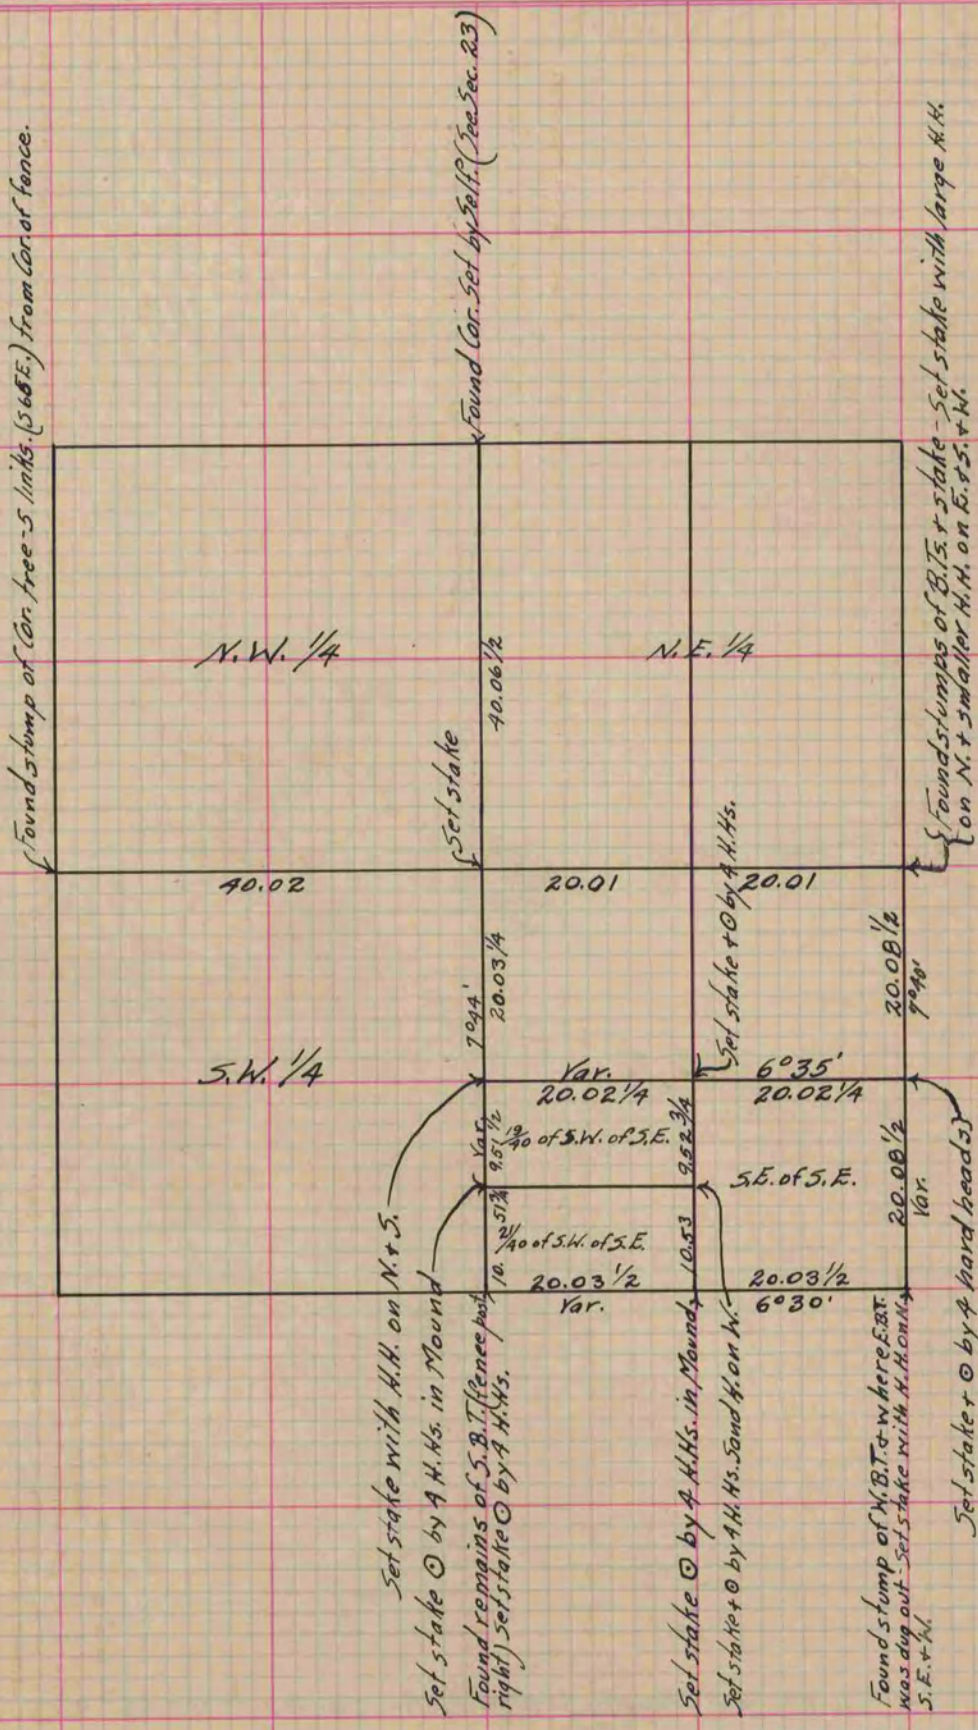 Found stump of Cor. tree-5 links. (S65E.) from Cor. of fence.
Found Cor. Set by Self. (See Sec. 23)
N.W. 1/4
N.E. 1/4
40.06 1/2
Set stake
{Found stumps of B.Ts. + stake - Set stake with large H.H.
on N. + smaller H.H. on E. + S. + W.
40.02
20.01
20.01
Set stake + ⊙ by 4 H.Hs.
7°44'
20.03 1/4
20.08 1/2
7°40'
S.W. 1/4
Var.
20.02 1/4
6°35'
20.02 1/4
Var.
9.51 1/2
19/40 of S.W. of S.E.
9.52 3/4
S.E. of S.E.
20.08 1/2
Var.
10.51 3/4
21/40 of S.W. of S.E.
10.53
20.03 1/2
Var.
20.03 1/2
6°30'
Set stake with H.H. on N. + S.
Set stake ⊙ by 4 H.Hs. in Mound
Found remains of S.B.T. (fence post
right) Set stake ⊙ by 4 H.Hs.
Set stake ⊙ by 4 H.Hs. in Mound
Set stake + ⊙ by 4 H.Hs. Sand H. on W.
Found stump of W.B.T. + where E.B.T.
was dug out - Set stake with H.H. on N.
S.E. + W.
Set stake + ⊙ by 4 hard heads}